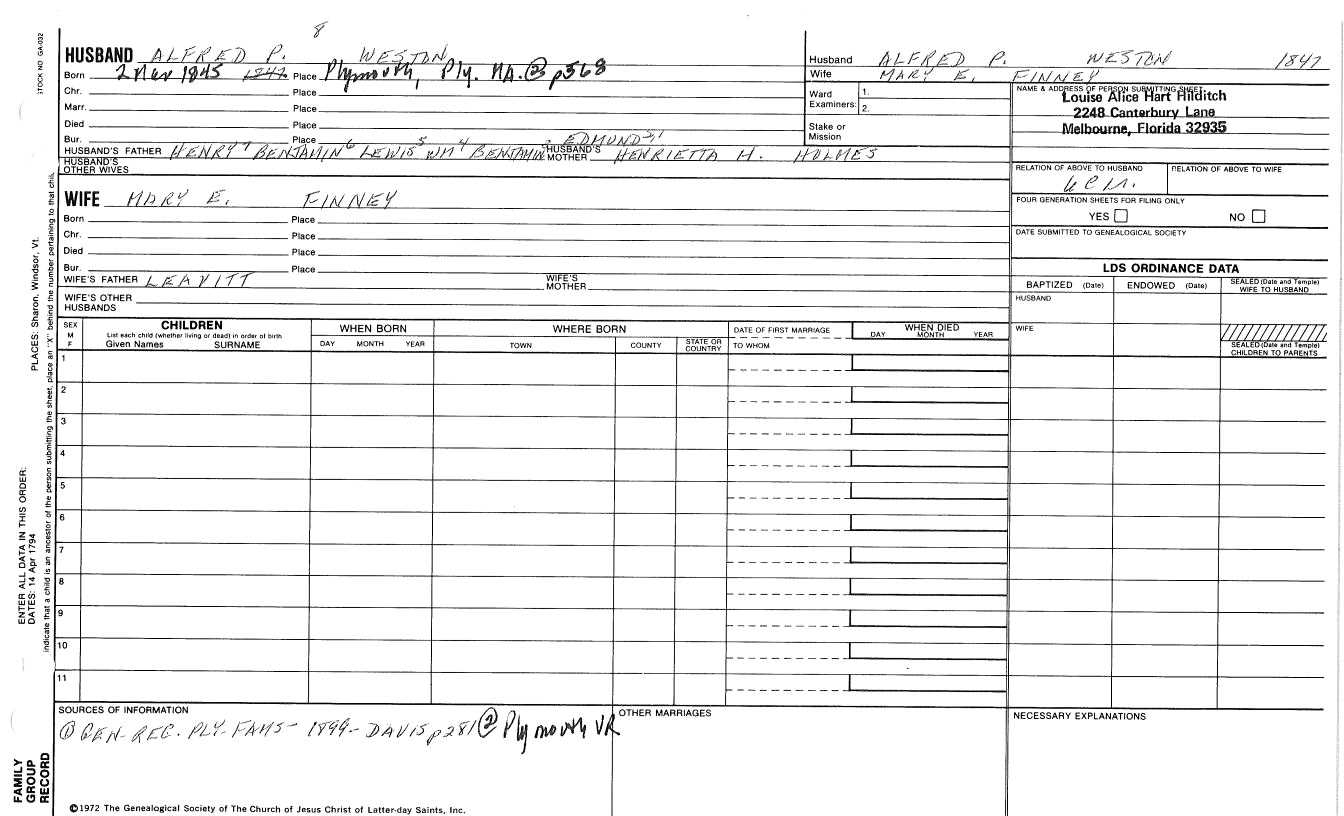 8
HUSBAND ALFRED P. WESTON
Born 2 Mar 1845 1847 Place Plymouth, Ply. MA. ② p368
Chr. Place
Marr. Place
Died Place
Bur. Place
HUSBAND'S FATHER HENRY7 BENJAMIN6 LEWIS5 WM4 BENJAMIN3 EDMUND2,1 HUSBAND'S MOTHER HENRIETTA H. HOLMES
HUSBAND'S OTHER WIVES
Husband ALFRED P. WESTON 1847
Wife MARY E. FINNEY
Ward Examiners: 1.
2.
Stake or Mission
NAME & ADDRESS OF PERSON SUBMITTING SHEET
Louise Alice Hart Hilditch
2248 Canterbury Lane
Melbourne, Florida 32935
RELATION OF ABOVE TO HUSBAND RELATION OF ABOVE TO WIFE
FOUR GENERATION SHEETS FOR FILING ONLY
YES NO
DATE SUBMITTED TO GENEALOGICAL SOCIETY
WIFE MARY E. FINNEY
Born Place
Chr. Place
Died Place
Bur. Place
WIFE'S FATHER LEAVITT WIFE'S MOTHER
WIFE'S OTHER HUSBANDS
LDS ORDINANCE DATA
BAPTIZED (Date) ENDOWED (Date) SEALED (Date and Temple) WIFE TO HUSBAND
HUSBAND
WIFE
SEALED (Date and Temple) CHILDREN TO PARENTS
SEX M F
CHILDREN
List each child (whether living or dead) in order of birth
Given Names SURNAME
WHEN BORN
DAY MONTH YEAR
WHERE BORN
TOWN COUNTY STATE OR COUNTRY
DATE OF FIRST MARRIAGE
TO WHOM
WHEN DIED
DAY MONTH YEAR
1
2
3
4
5
6
7
8
9
10
11
SOURCES OF INFORMATION
① GEN. REC. PLY. FAMS- 1899- DAVIS p281 ② Plymouth VR
OTHER MARRIAGES
NECESSARY EXPLANATIONS
©1972 The Genealogical Society of The Church of Jesus Christ of Latter-day Saints, Inc.
STOCK NO GA-032
PLACES: Sharon, Windsor, Vt.
indicate that a child is an ancestor of the person submitting the sheet, place an "X" behind the number pertaining to that chil
ENTER ALL DATA IN THIS ORDER:
DATES: 14 Apr 1794
FAMILY
GROUP
RECORD